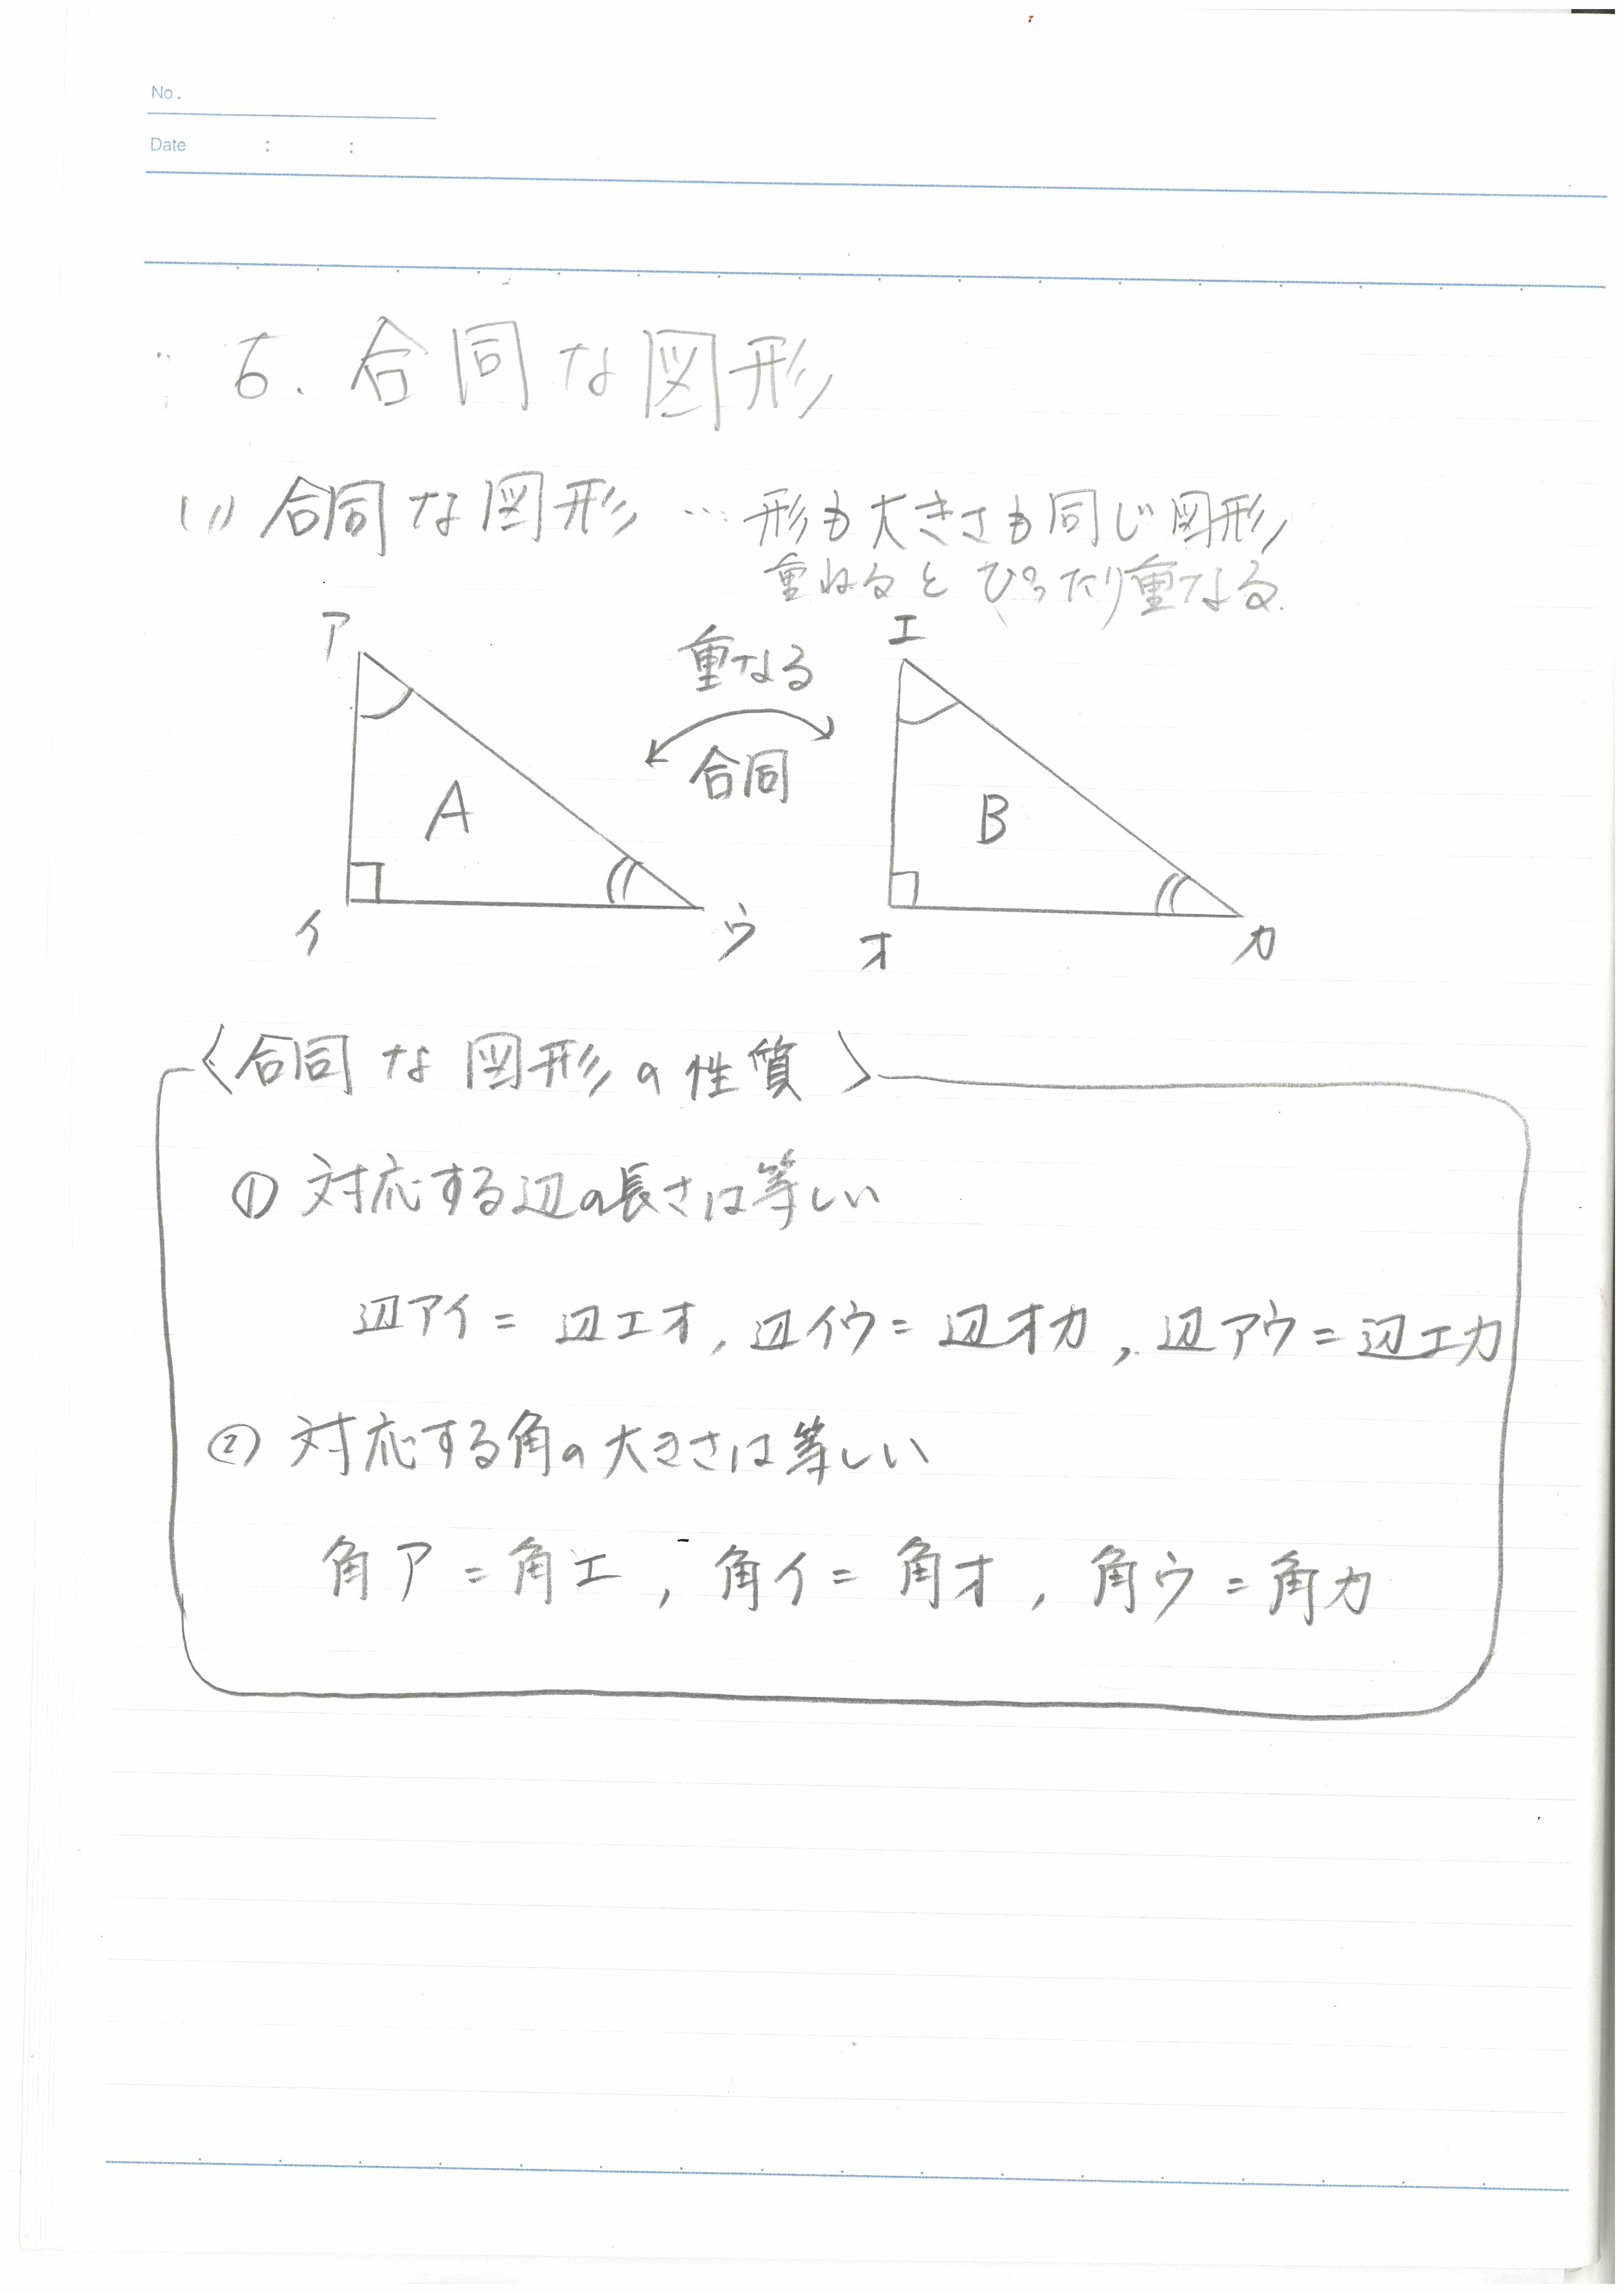 No.
Date : :
6. 合同な図形
(1) 合同な図形 … 形も大きさも同じ図形
重ねるとぴったり重なる.
ア
エ
重なる
合同
A
B
イ
ウ
オ
カ
〈合同な図形の性質〉
① 対応する辺の長さは等しい
辺アイ = 辺エオ, 辺イウ = 辺オカ, 辺アウ = 辺エカ
② 対応する角の大きさは等しい
角ア = 角エ, 角イ = 角オ, 角ウ = 角カ